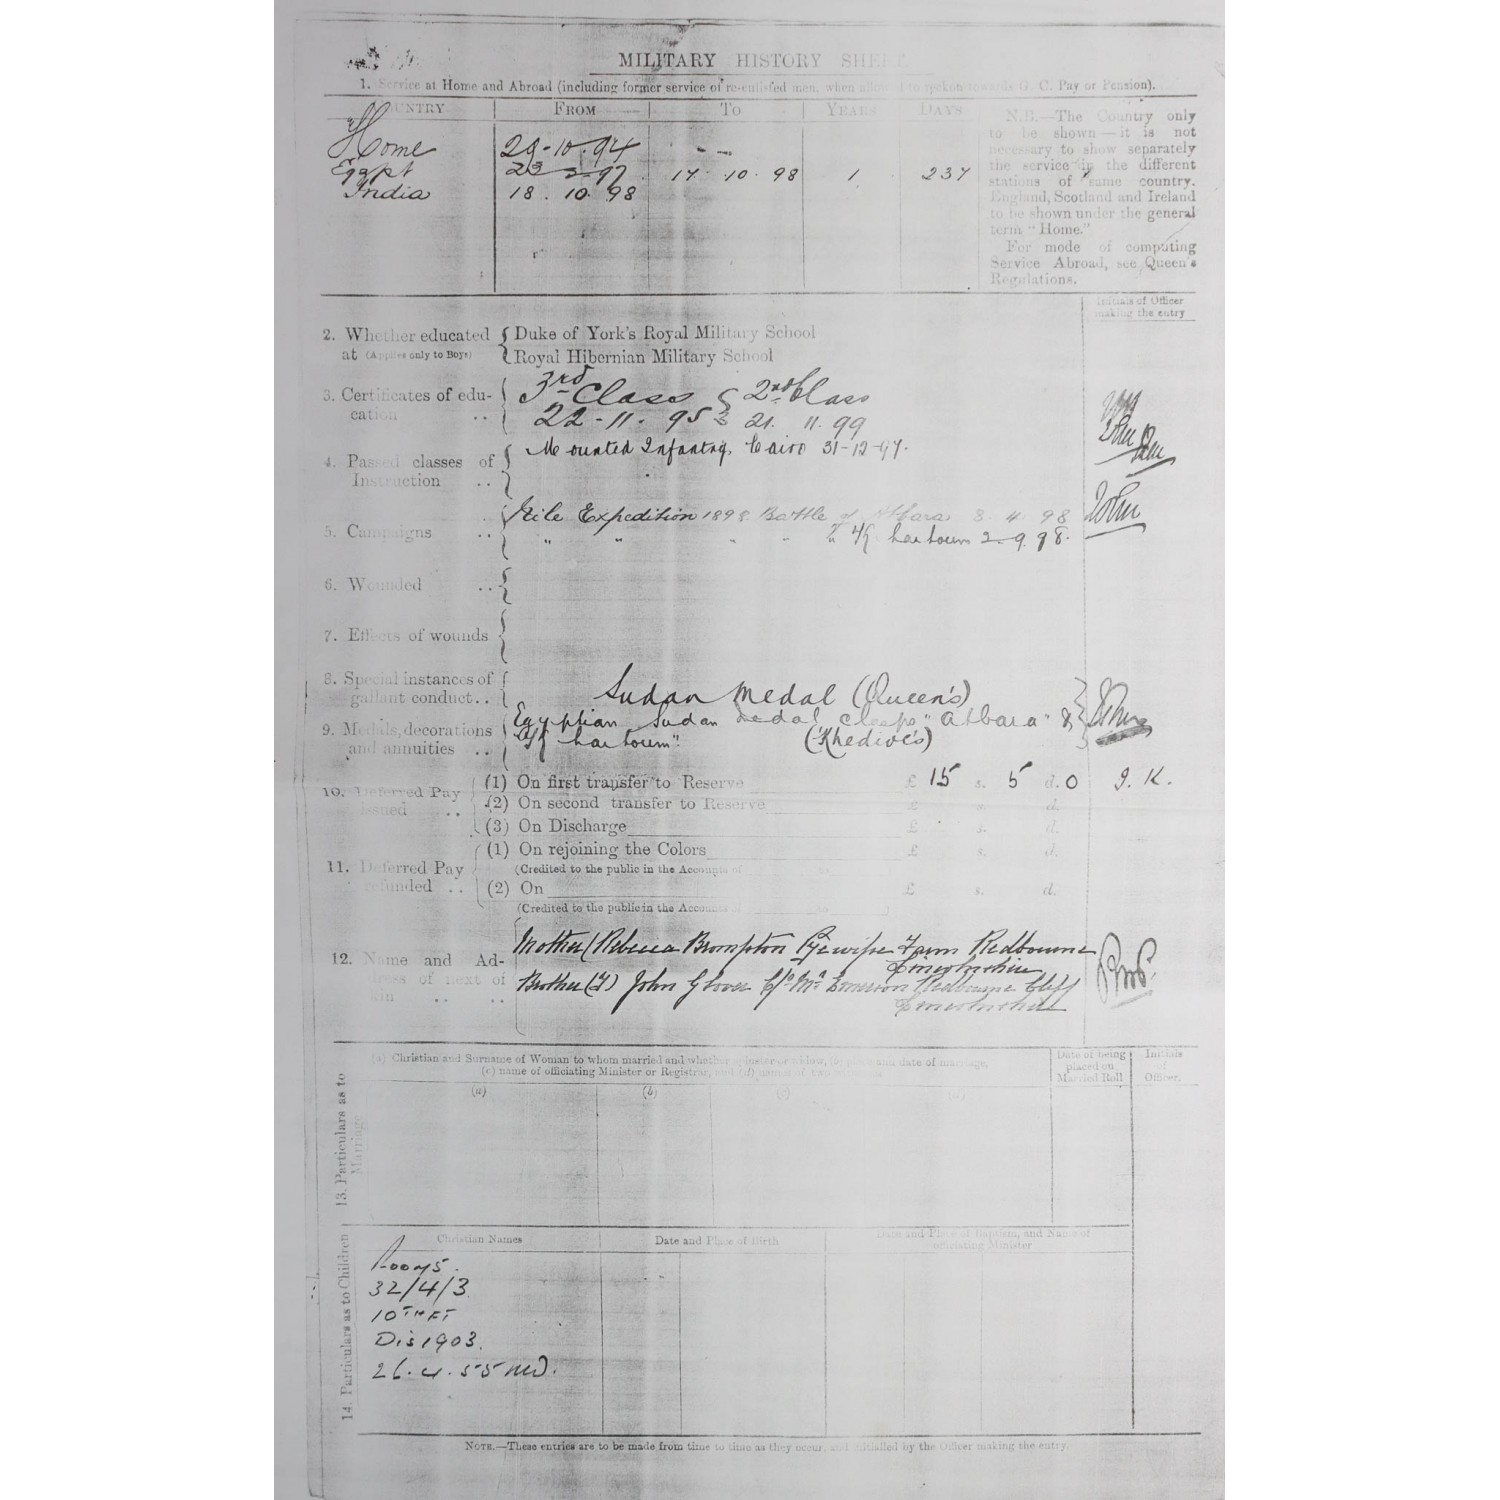 MILITARY HISTORY SHEET
1. Service at Home and Abroad (including former service of re-enlisted men, when allowed to reckon towards G. C. Pay or Pension).
COUNTRY FROM TO YEARS DAYS
Home 29-10-94
Egypt 23 2-97 17 10 98 1 237
India 18. 10. 98
N.B.—The Country only
to be shown—it is not
necessary to show separately
the service in the different
stations of same country.
England, Scotland and Ireland
to be shown under the general
term "Home."
For mode of computing
Service Abroad, see Queen's
Regulations.
Initials of Officer
making the entry
2. Whether educated { Duke of York's Royal Military School
at (Applies only to Boys) Royal Hibernian Military School
3. Certificates of edu- 3rd Class } 2nd Class
cation .. 22-11. 95 21. 11. 99
4. Passed classes of Mounted Infantry, Cairo 31-12-97.
Instruction ..
Nile Expedition 1898. Battle of Atbara 8. 4. 98
5. Campaigns .. " " " " " Khartoum 2-9.98.
6. Wounded ..
7. Effects of wounds
8. Special instances of
gallant conduct.. Sudan Medal (Queen's)
9. Medals, decorations Egyptian Sudan Medal clasps "Atbara" &
and annuities .. "Khartoum". (Khedive's)
10. Deferred Pay issued .. (1) On first transfer to Reserve £ 15 s. 5 d. 0 J. K.
(2) On second transfer to Reserve £ s. d.
(3) On Discharge £ s. d.
11. Deferred Pay refunded .. (1) On rejoining the Colors £ s. d.
(Credited to the public in the Accounts of to
(2) On £ s. d.
(Credited to the public in the Accounts of to
12. Name and Ad- Mother/Rebecca Brompton Pyewipe Farm Redbourne
dress of next of Lincolnshire
kin .. .. Brother (Y) John Glover C/o Mr Emerson Redbourne Cliff
Lincolnshire
13. Particulars as to Marriage
(a) Christian and Surname of Woman to whom married and whether spinster or widow, (b) place and date of marriage,
(c) name of officiating Minister or Registrar, and (d) names of two witnesses
Date of being
placed on
Married Roll
Initials
of
Officer.
(a) (b) (c) (d)
14. Particulars as to Children
Christian Names Date and Place of Birth Date and Place of Baptism, and Name of
officiating Minister
32/4/3
10TH FT
Dis 1903.
26.4.55
NOTE.—These entries are to be made from time to time as they occur, and initialled by the Officer making the entry.